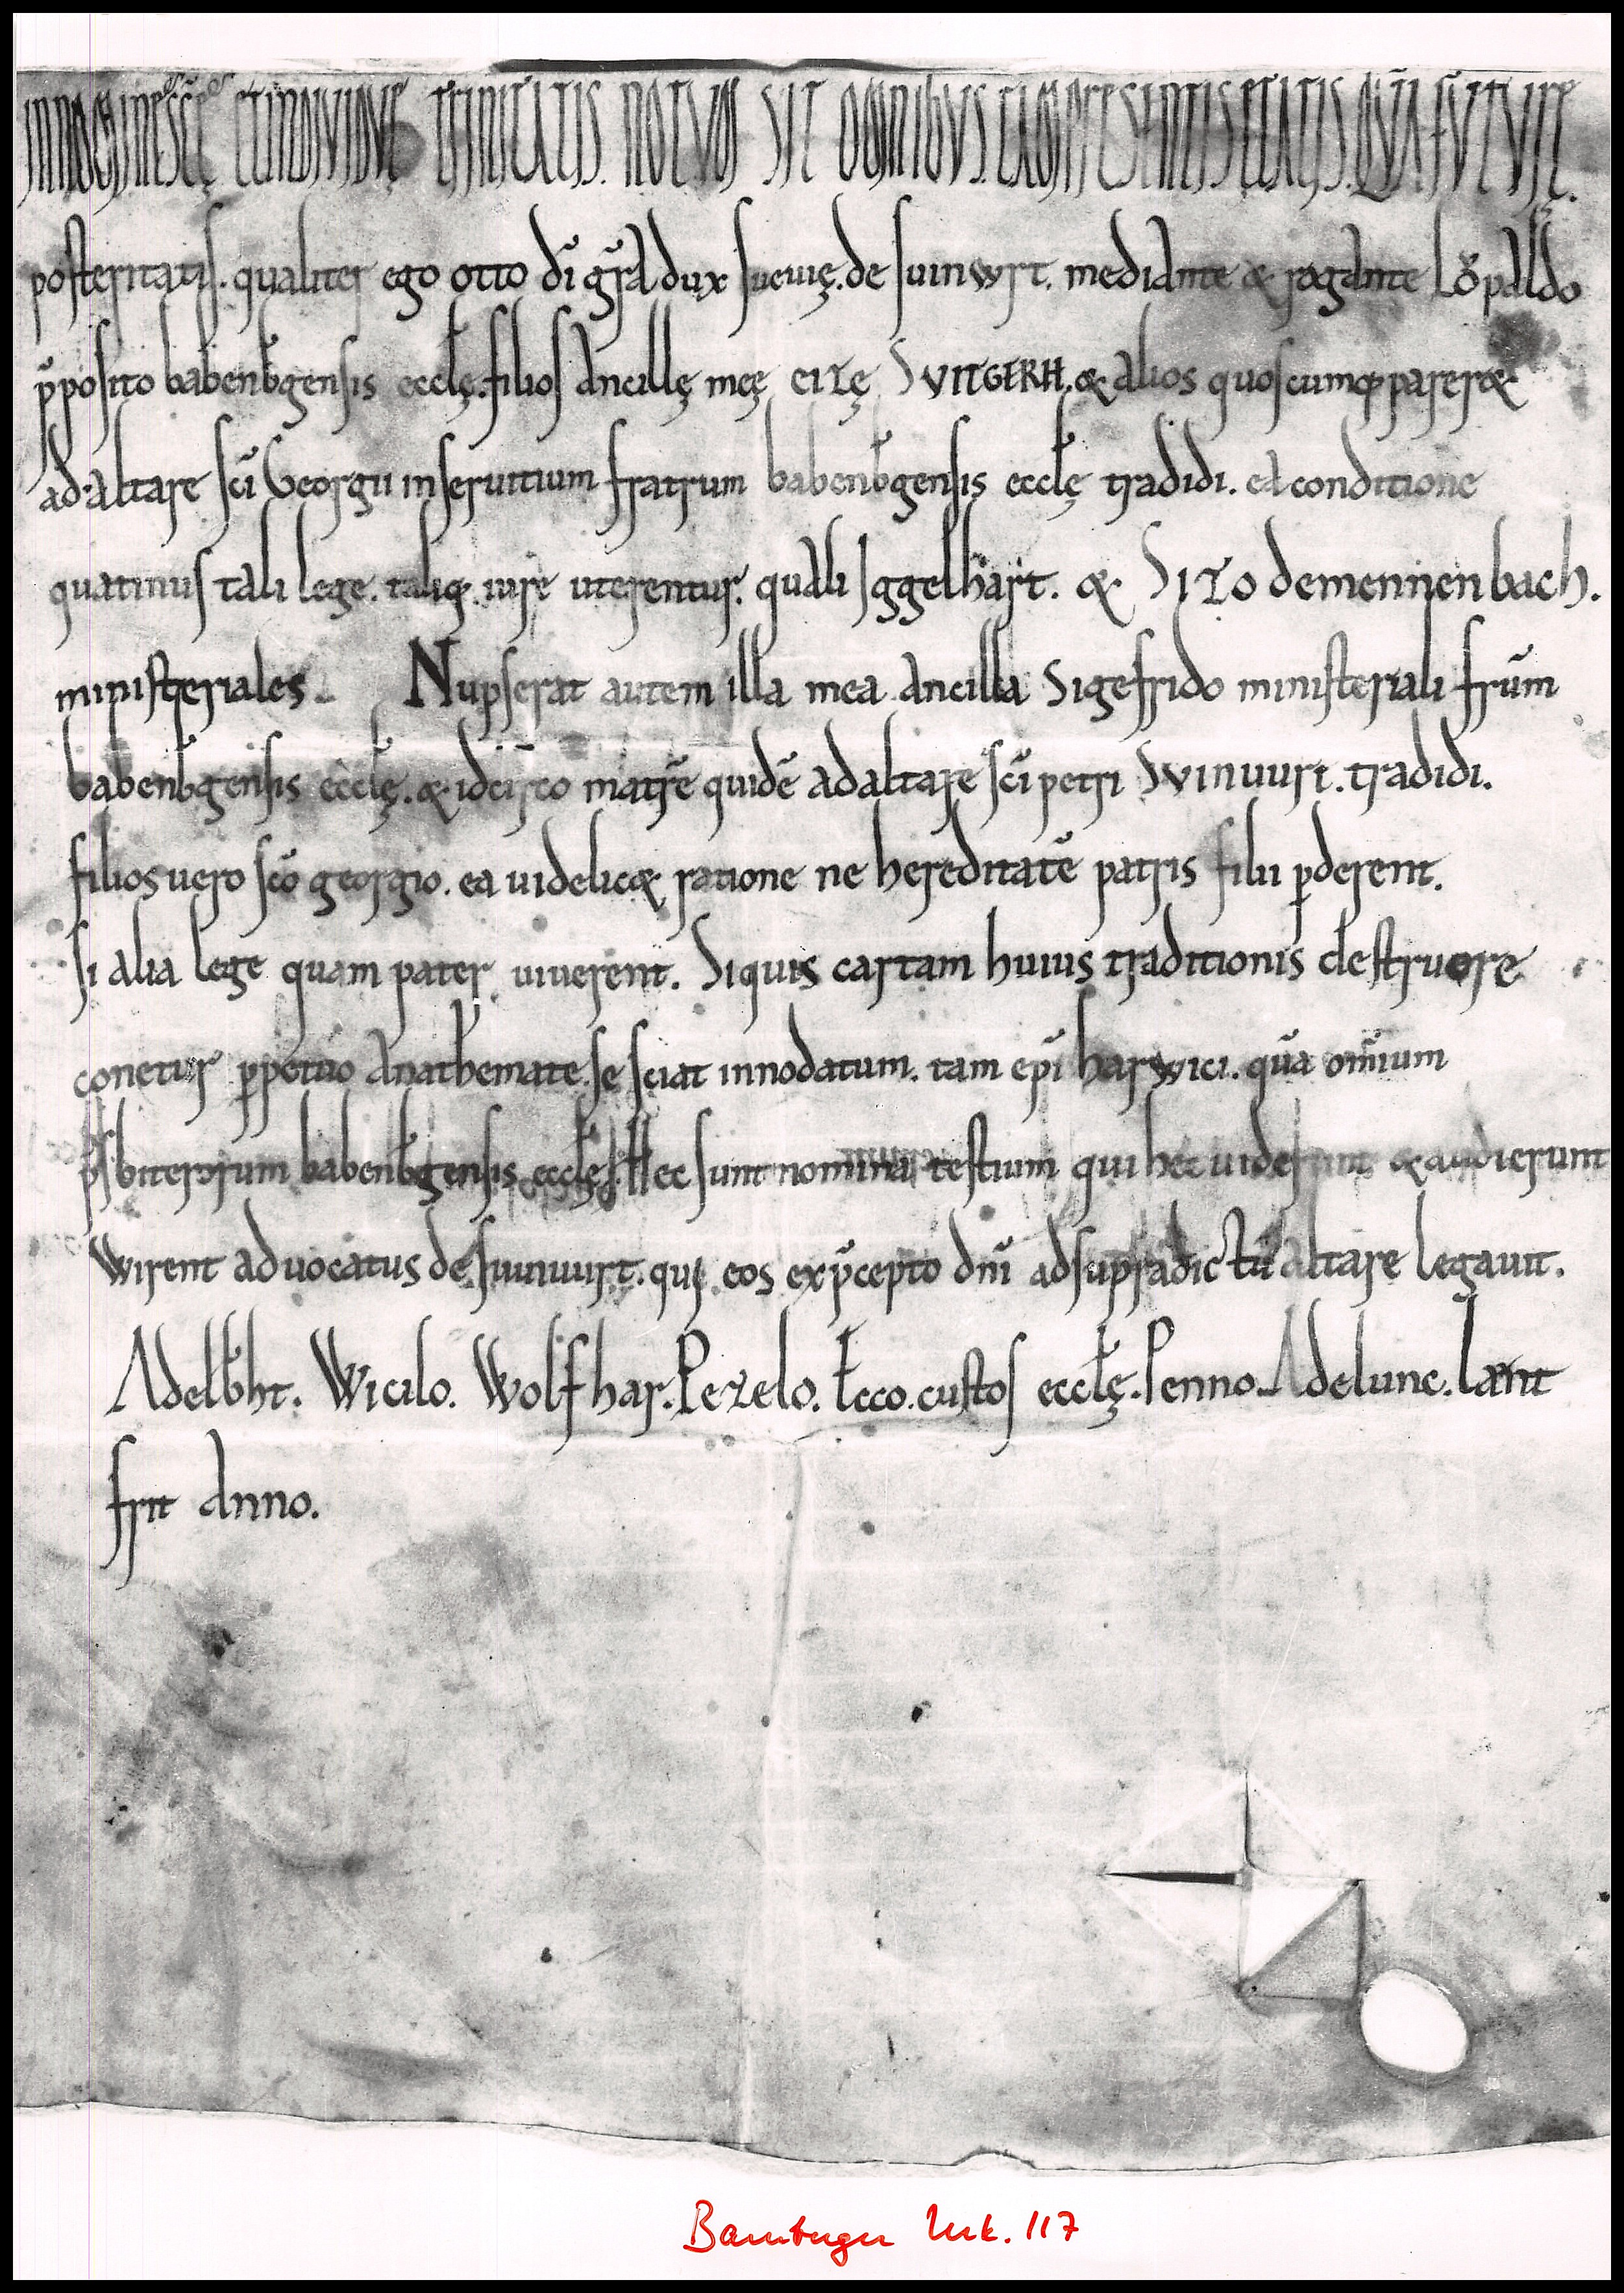 IN NOMINE SC̄Ę ET INDIVIDVĘ TRINITATIS. NOTVM SIT OMNIBVS. TAM PRESENTIS ETATIS. QVĀ FVTVRĘ.
posteritatis. qualiter ego otto dī gr̄a dux sueuię. de suinwrt. mediante & rogante Lŏpaldo
p̄posito babenb̄gensis eccl̄ę. filios ancillę meę eizę SVITGERH. & alios quoscumq; parer&
ad altare sc̄i Georgii in seruitium fratrum babenb̄gensis eccl̄ę tradidi. ea conditione
quatinus tali lege. taliq; iure uterentur. quali Iggelhart. & Sizo de mennenbach.
ministeriales. Nupserat autem illa mea ancilla Sigefrido ministeriali fr̄um
babenb̄gensis eccl̄ę. & idcirco matrē quidē ad altare sc̄i petri Svinuurt. tradidi.
filios uero sc̄o georgio. ea uidelic& ratione ne hereditatē patris filii p̱derent.
si alia lege quam pater uiuerent. Siquis cartam huius traditionis destruere
conetur p̱petuo anathemate se sciat innodatum. tam ep̄i harwici. quā om̄ium
p̄sbiterorum babenb̄gensis eccl̄ę. Hec sunt nomina testium qui hec uiderunt & audierunt
Wirent aduocatus de suinuurt. qui eos ex p̄cepto dn̄i ad supradictū altare legauit.
Adelb̄ht. Wicilo. Wolfhar. Pezelo. Ecco. custos eccl̄ę. Penno. Adelunc. Lant
frit Anno.
Bamberger Urk. 117